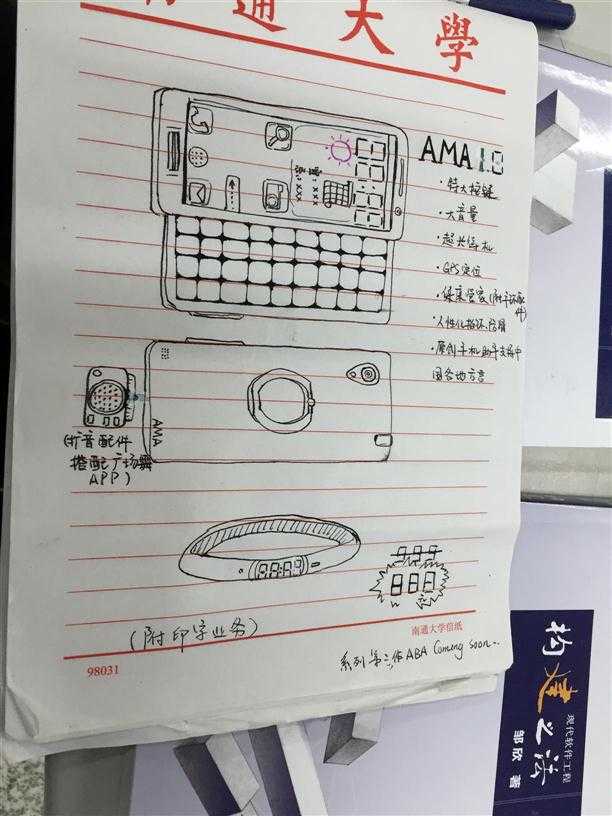 南通大學
AMA 1.0
·特大按键
·大音量
·超长待机
·GPS定位
·健康管家(附手环配件)
·人性化指环
·原创手机助手支持中
国各地方言
AMA
(扩音配件
搭配广场舞
APP)
999
888元
(附印字业务)
南通大学信纸
98031
系列第二体ABA Coming Soon...
构建之法
现代软件工程
邹欣 著